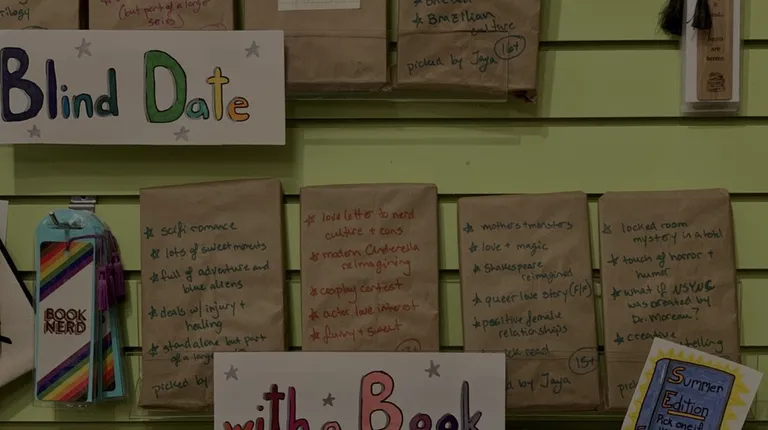 trilogy
(but part of a large
series)
★ Brazilian
culture
picked by Jaya
16+
Blind Date
BOOK
NERD
★ scifi romance
★ lots of sweet moments
★ full of adventure and
blue aliens
★ deals w/ injury +
healing
★ standalone but part
of a large
picked by
★ love letter to nerd
culture + cons
★ modern Cinderella
reimagining
★ cosplay contest
★ actor love interest
★ funny + sweet
★ mothers + monsters
★ love + magic
★ Shakespeare
reimagined
★ queer love story (F/F)
★ positive female
relationships
read
15+
by Jaya
★ locked room
mystery in a hotel
★ touch of horror +
humor
★ what if NSYNC
was created by
Dr. Moreau?
★ creative
telling
with a Book
Summer
Edition